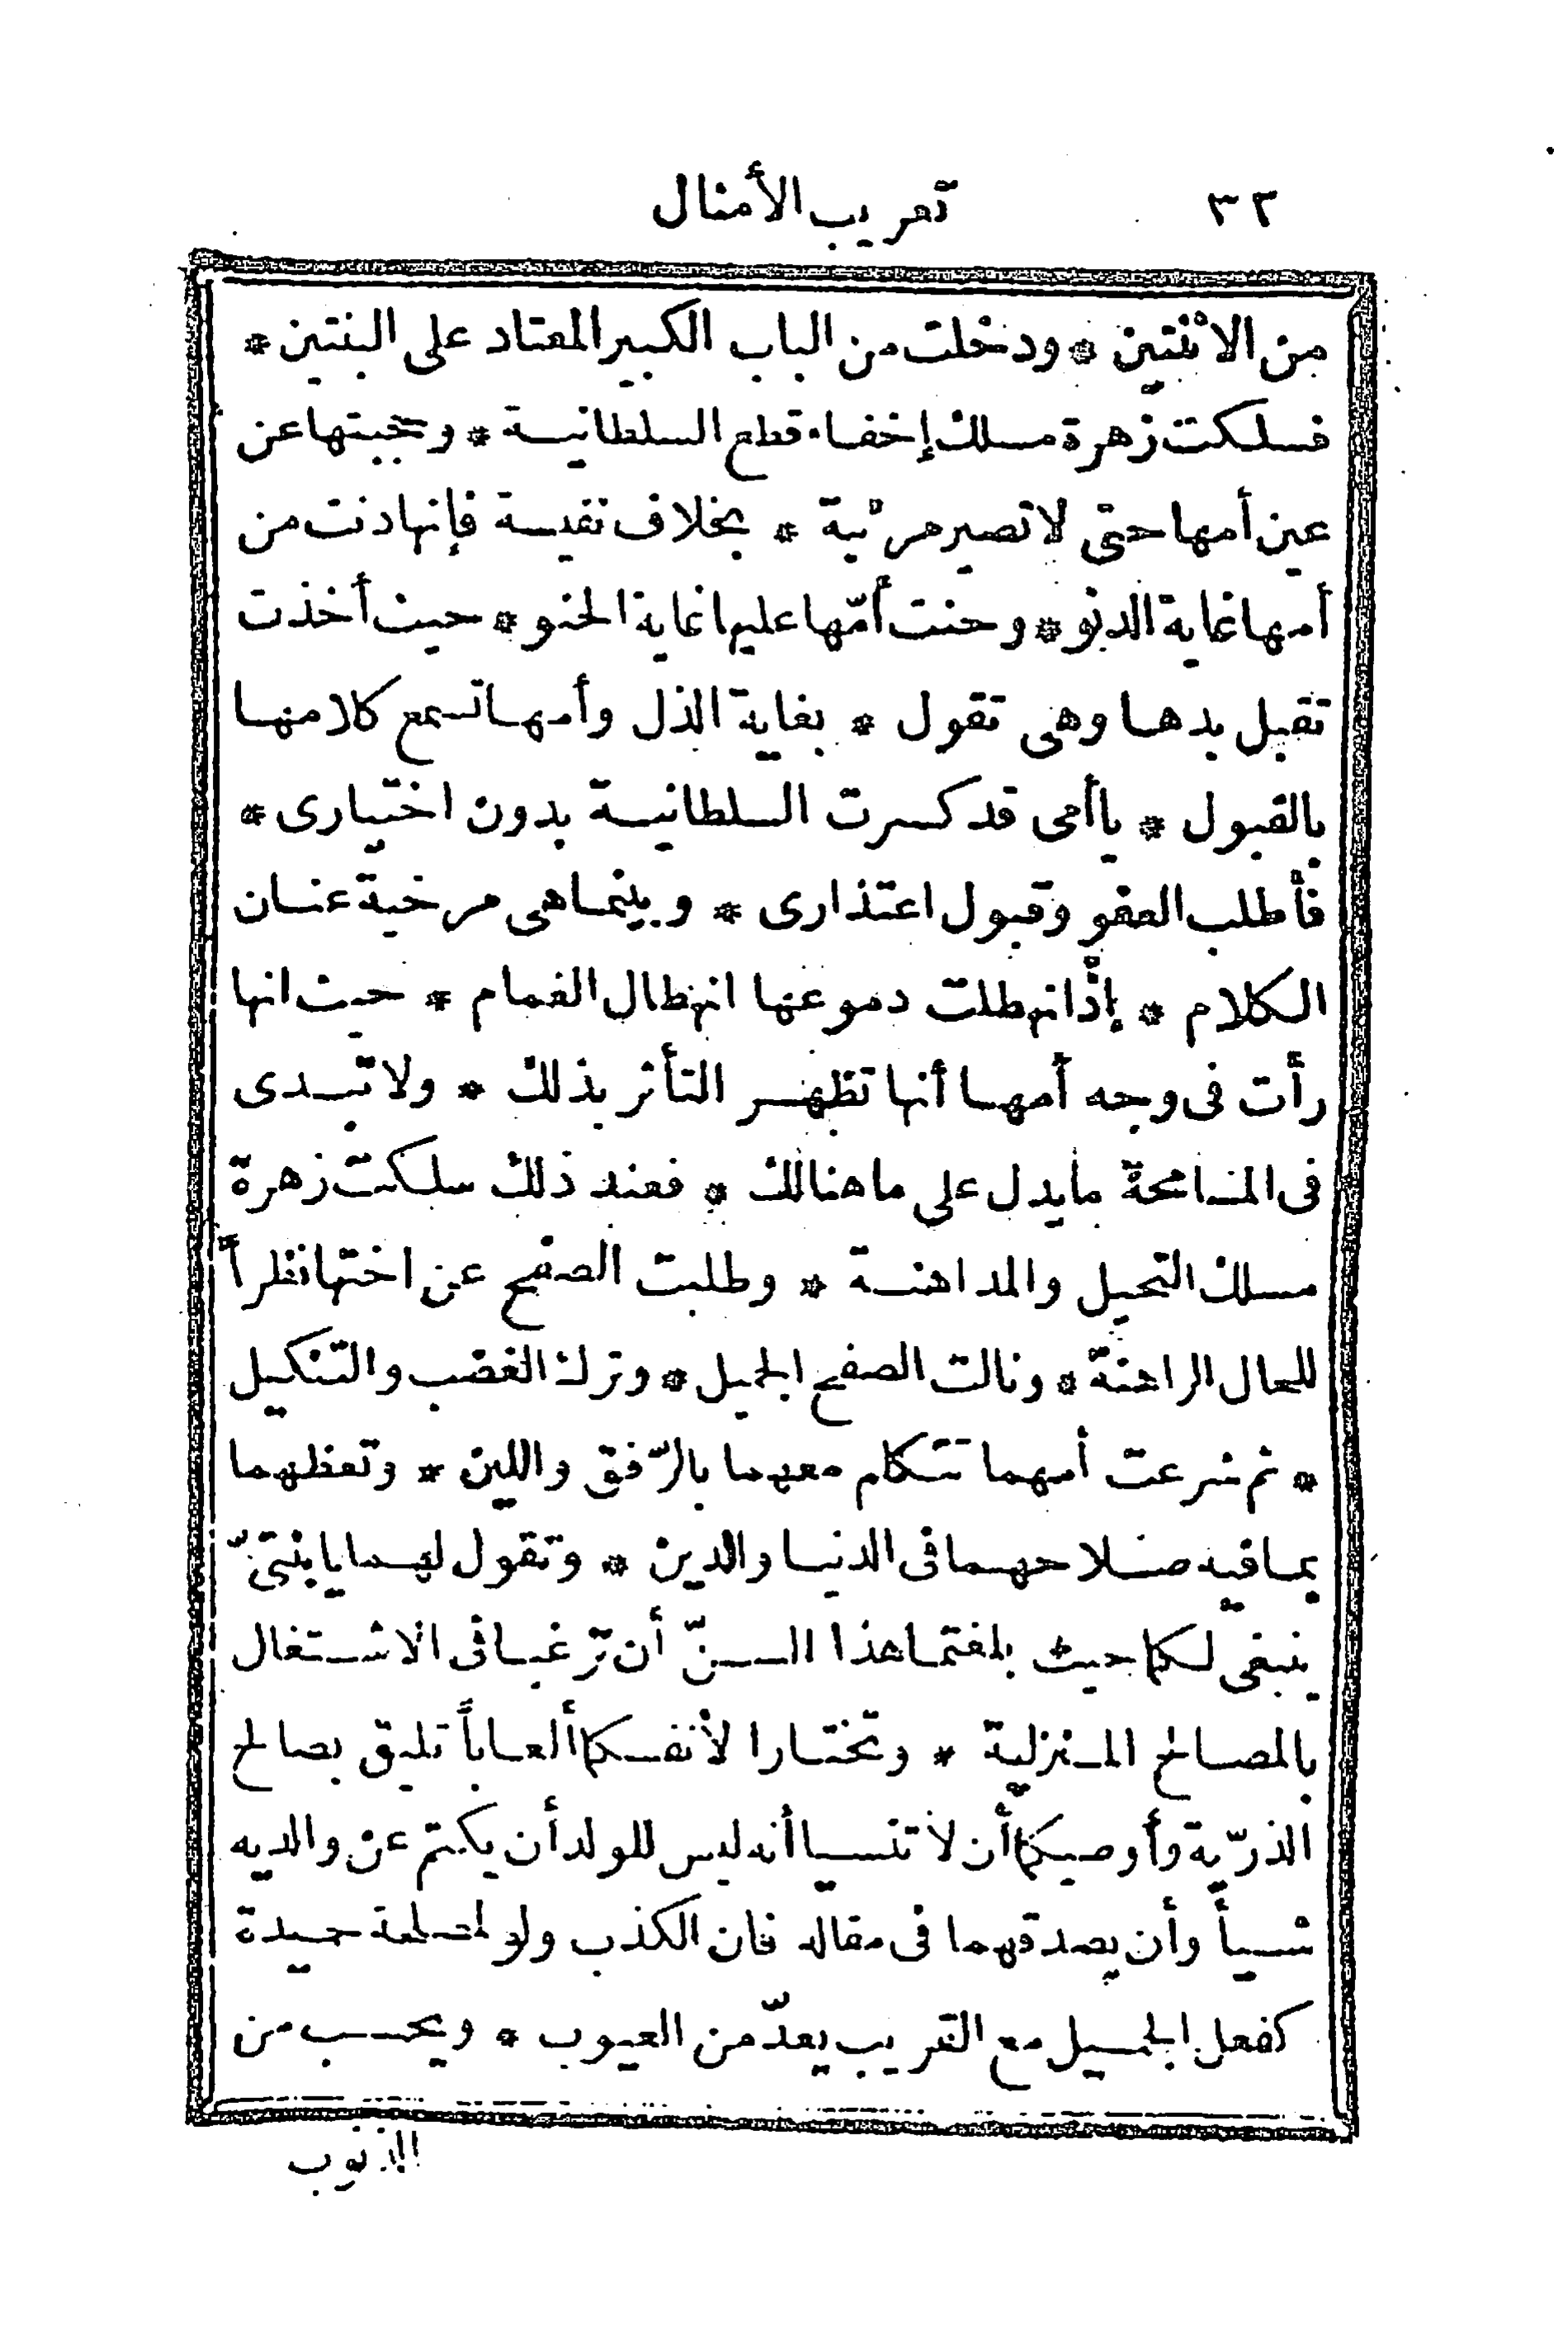 ٣٢ تعريب الأمثال
من الاثنتين * ودخلت من الباب الكبير المعتاد على البنتين *
فسلكت زهرة مسلك إخفاء قطع السلطانية * وحجبتها عن
عين أمها حتى لا تصير مرئية * بخلاف نفيسة فإنها دنت من
أمها غاية الدنو * وحنت أمّها عليها غاية الحنو * حيث أخذت
تقبل يدها وهي تقول * بغاية الذل وأمها تسمع كلامها
بالقبول * يا أمى قد كسرت السلطانية بدون اختيارى *
فأطلب العفو وقبول اعتذارى * وبينما هى مرخية عنان
الكلام * إذ انهطلت دموعها انهطال الغمام * حيث انها
رأت فى وجه أمها أنها تظهر التأثر بذلك * ولا تبدى
فى المسامحة ما يدل على ما هنالك * فعند ذلك سلكت زهرة
مسلك التحيل والمداهنة * وطلبت الصفح عن اختها نظراً
للحال الراهنة * ونالت الصفح الجميل * وترك الغضب والتنكيل
* ثم شرعت أمهما تتكلم معهما بالرّفق واللين * وتعظهما
بما فيه صلاحهما فى الدنيا والدين * وتقول لهما يا بنتىّ
ينبغى لكما حيث بلغتما هذا السنّ أن ترغبا فى الاشتغال
بالمصالح المنزلية * وتختارا لأنفسكما ألعاباً تليق بصالح
الذرّية وأوصيكما أن لا تنسيا أنه ليس للولد أن يكتم عن والديه
شيأً وأن يصدقهما فى مقاله فان الكذب ولو لمصلحة حميدة
كفعل الجميل مع القريب يعدّ من العيوب * ويحسب من
الذنوب